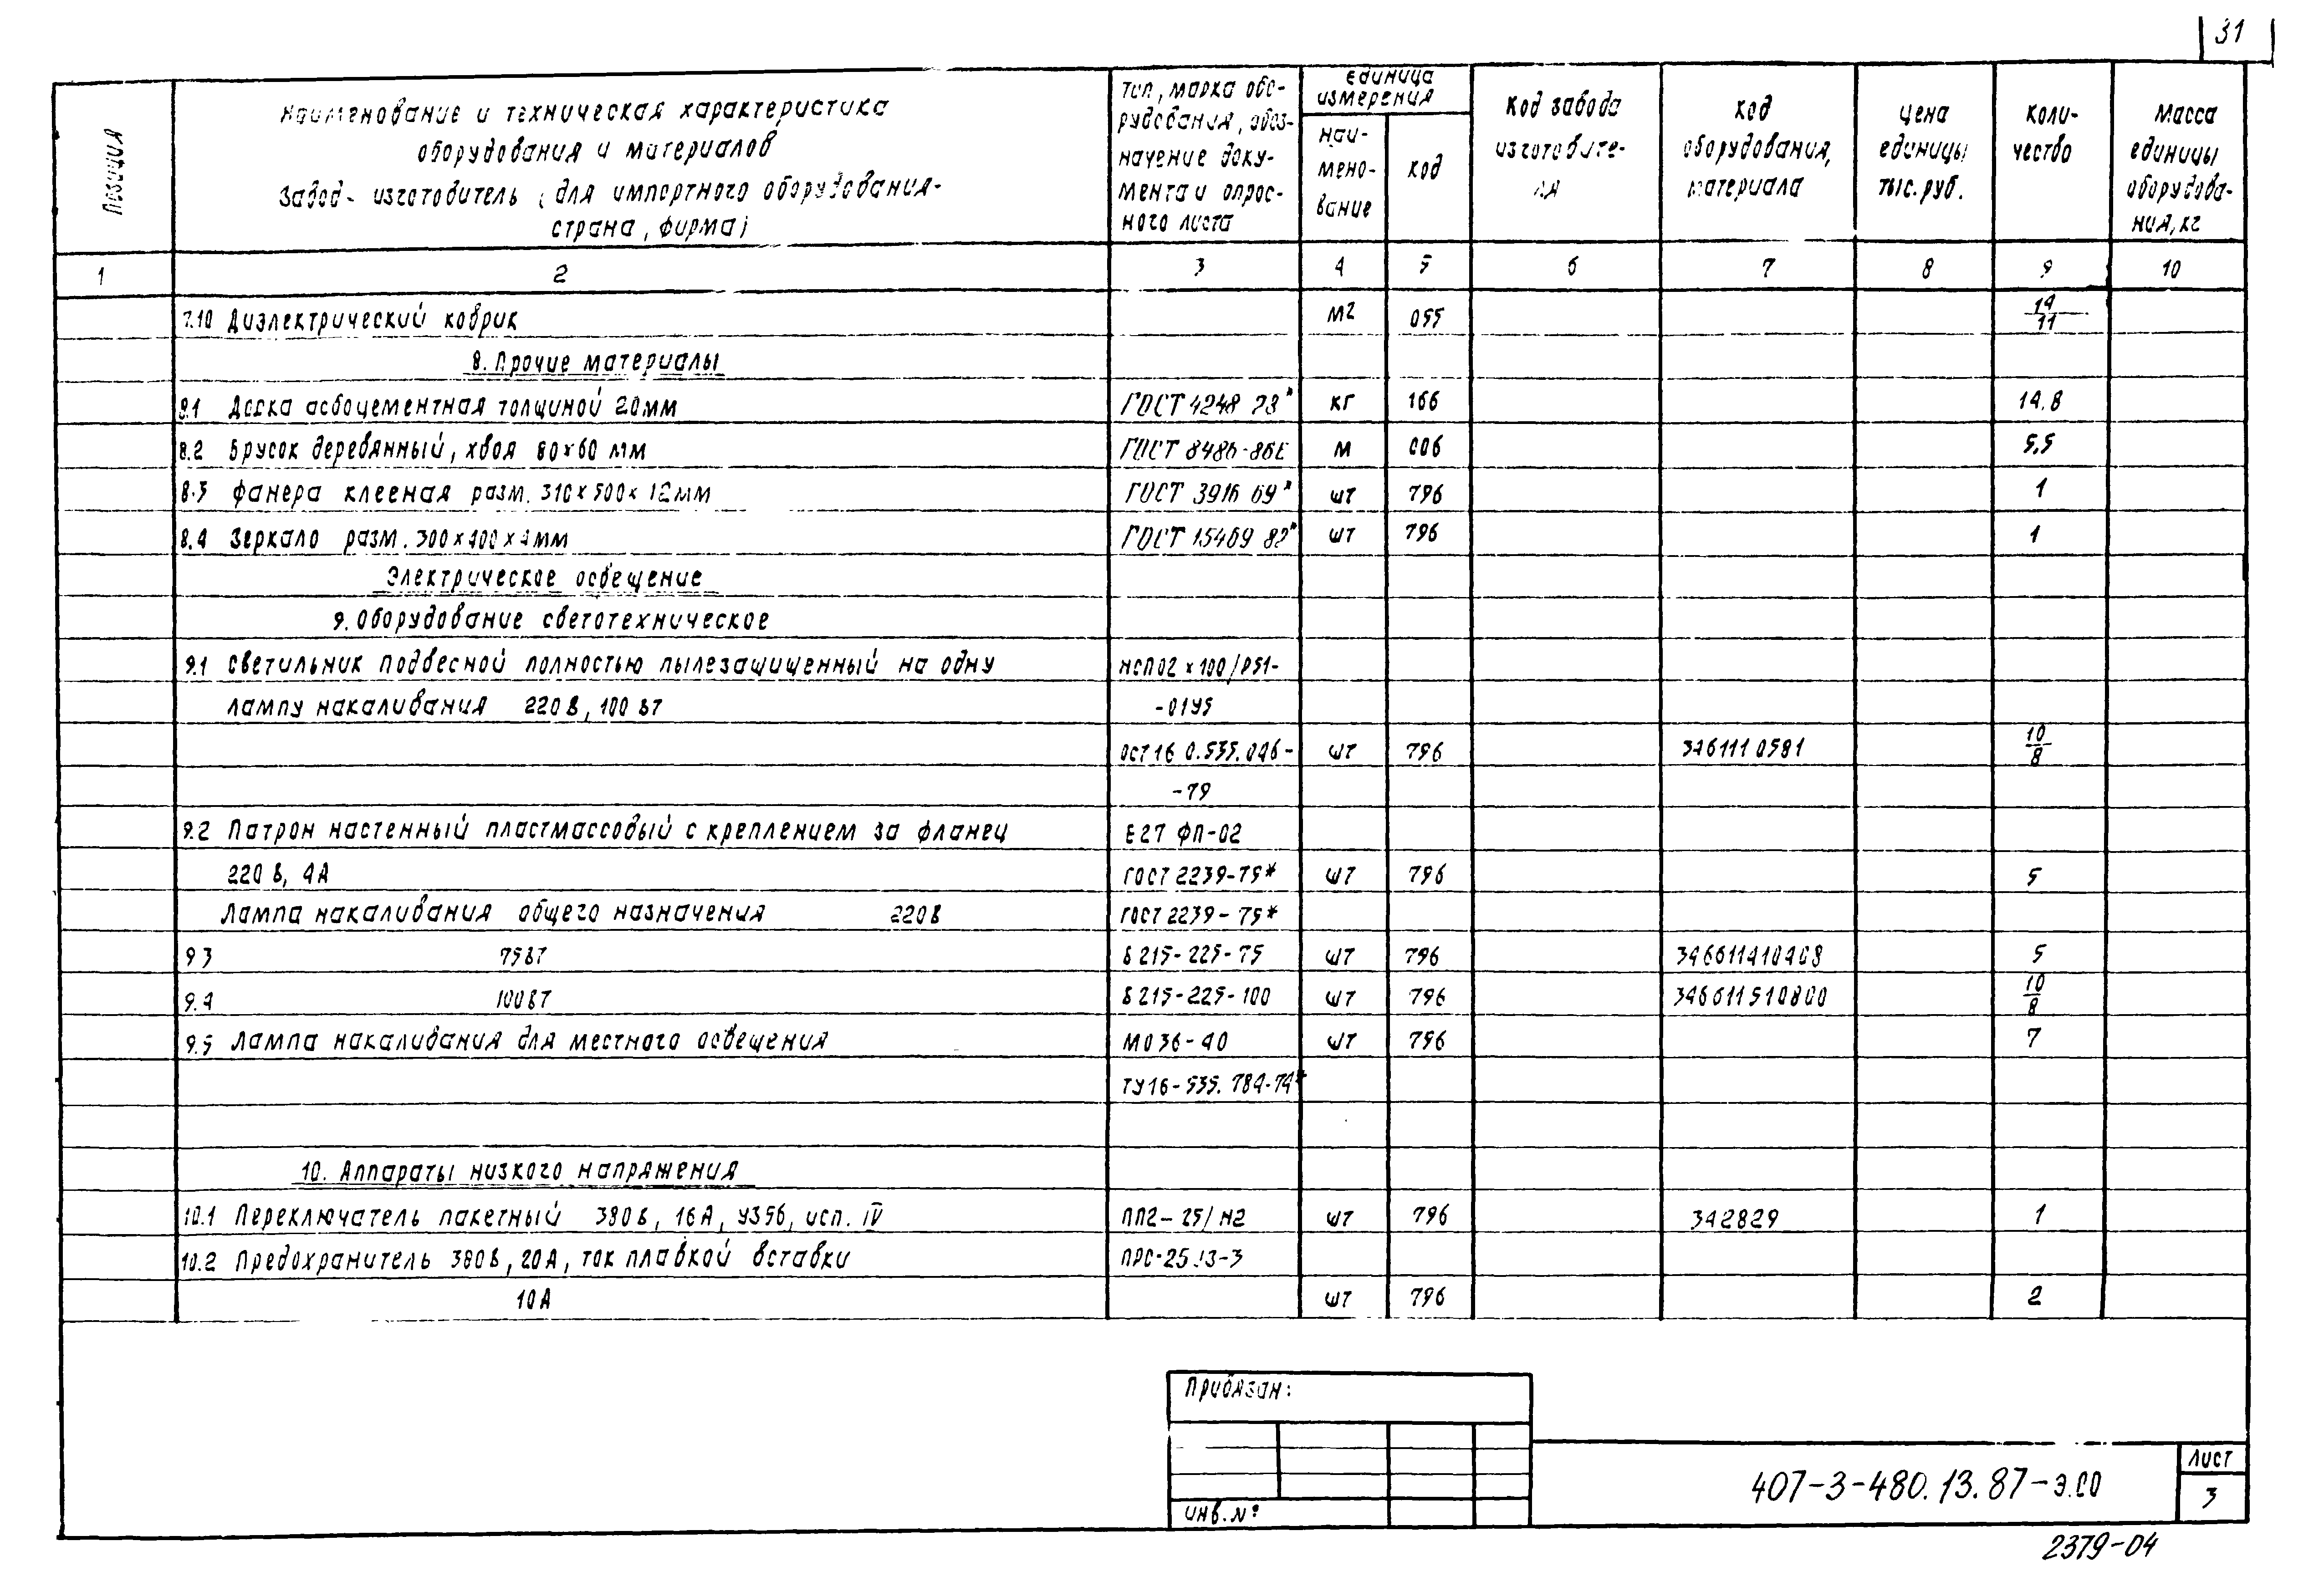 31
Позиция
Наименование и техническая характеристика
оборудования и материалов
Завод-изготовитель (для импортного оборудования-
страна, фирма)
Тип, марка обо-
рудования, обоз-
начение доку-
мента и опрос-
ного листа
Единица
измерения
наи-
мено-
вание
код
Код завода
изготовите-
ля
Код
оборудования,
материала
Цена
единицы
тыс. руб.
Коли-
чество
Масса
единицы
оборудова-
ния, кг
1 2 3 4 5 6 7 8 9 10
7.10 Диэлектрический коврик м2 055 14/11
8. Прочие материалы
8.1 Доска асбоцементная толщиной 20мм ГОСТ 4248 78* кг 166 14.8
8.2 Брусок деревянный, хвоя 80×60 мм ГОСТ 8486-86Е м 006 5,5
8.3 Фанера клееная разм. 310×500×12мм ГОСТ 3916 69* шт 796 1
8.4 Зеркало разм. 300×400×4мм ГОСТ 15469 82* шт 796 1
Электрическое освещение
9. Оборудование светотехническое
9.1 Светильник подвесной полностью пылезащищенный на одну НСП02×100/Р51-
лампу накаливания 220В, 100 Вт -01У5
ОСТ16 0.535.046- шт 796 3461110581 10/8
-79
9.2 Патрон настенный пластмассовый с креплением за фланец Е27 ФП-02
220 В, 4А ГОСТ 2239-79* шт 796 5
Лампа накаливания общего назначения 220В ГОСТ 2239-79*
9.3 75Вт Б215-225-75 шт 796 346611410408 5
9.4 100Вт Б215-225-100 шт 796 346611510800 10/8
9.5 Лампа накаливания для местного освещения МО36-40 шт 796 7
ТУ16-535.784-74*
10. Аппараты низкого напряжения
10.1 Переключатель пакетный 380В, 16А, У356, исп. IV ПП2-25/Н2 шт 796 342829 1
10.2 Предохранитель 380В, 20А, ток плавкой вставки ПРС-25
10А шт 796 2
Привязан:
Инв. №
407-3-480.13.87-Э.СО
Лист
3
2379-04